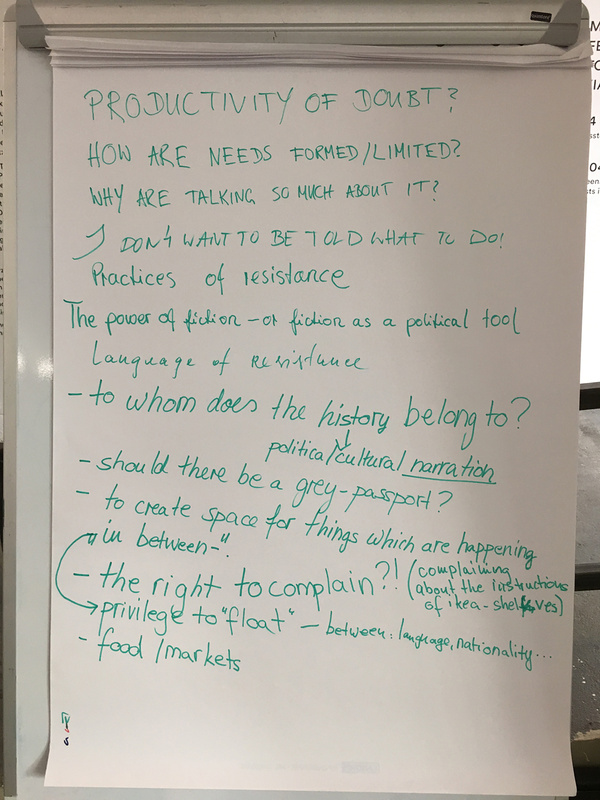 PRODUCTIVITY OF DOUBT?
HOW ARE NEEDS FORMED/LIMITED?
WHY ARE TALKING SO MUCH ABOUT IT?
I DON'T WANT TO BE TOLD WHAT TO DO!
Practices of resistance
The power of fiction – or fiction as a political tool
Language of resistance
- to whom does the history belong to?
political/cultural narration
- should there be a grey-passport?
- to create space for things which are happening
"in between-".
- the right to complain?! (complaining
about the instructions
of ikea-shelves)
privilege to "float" – between: language, nationality...
- food/markets